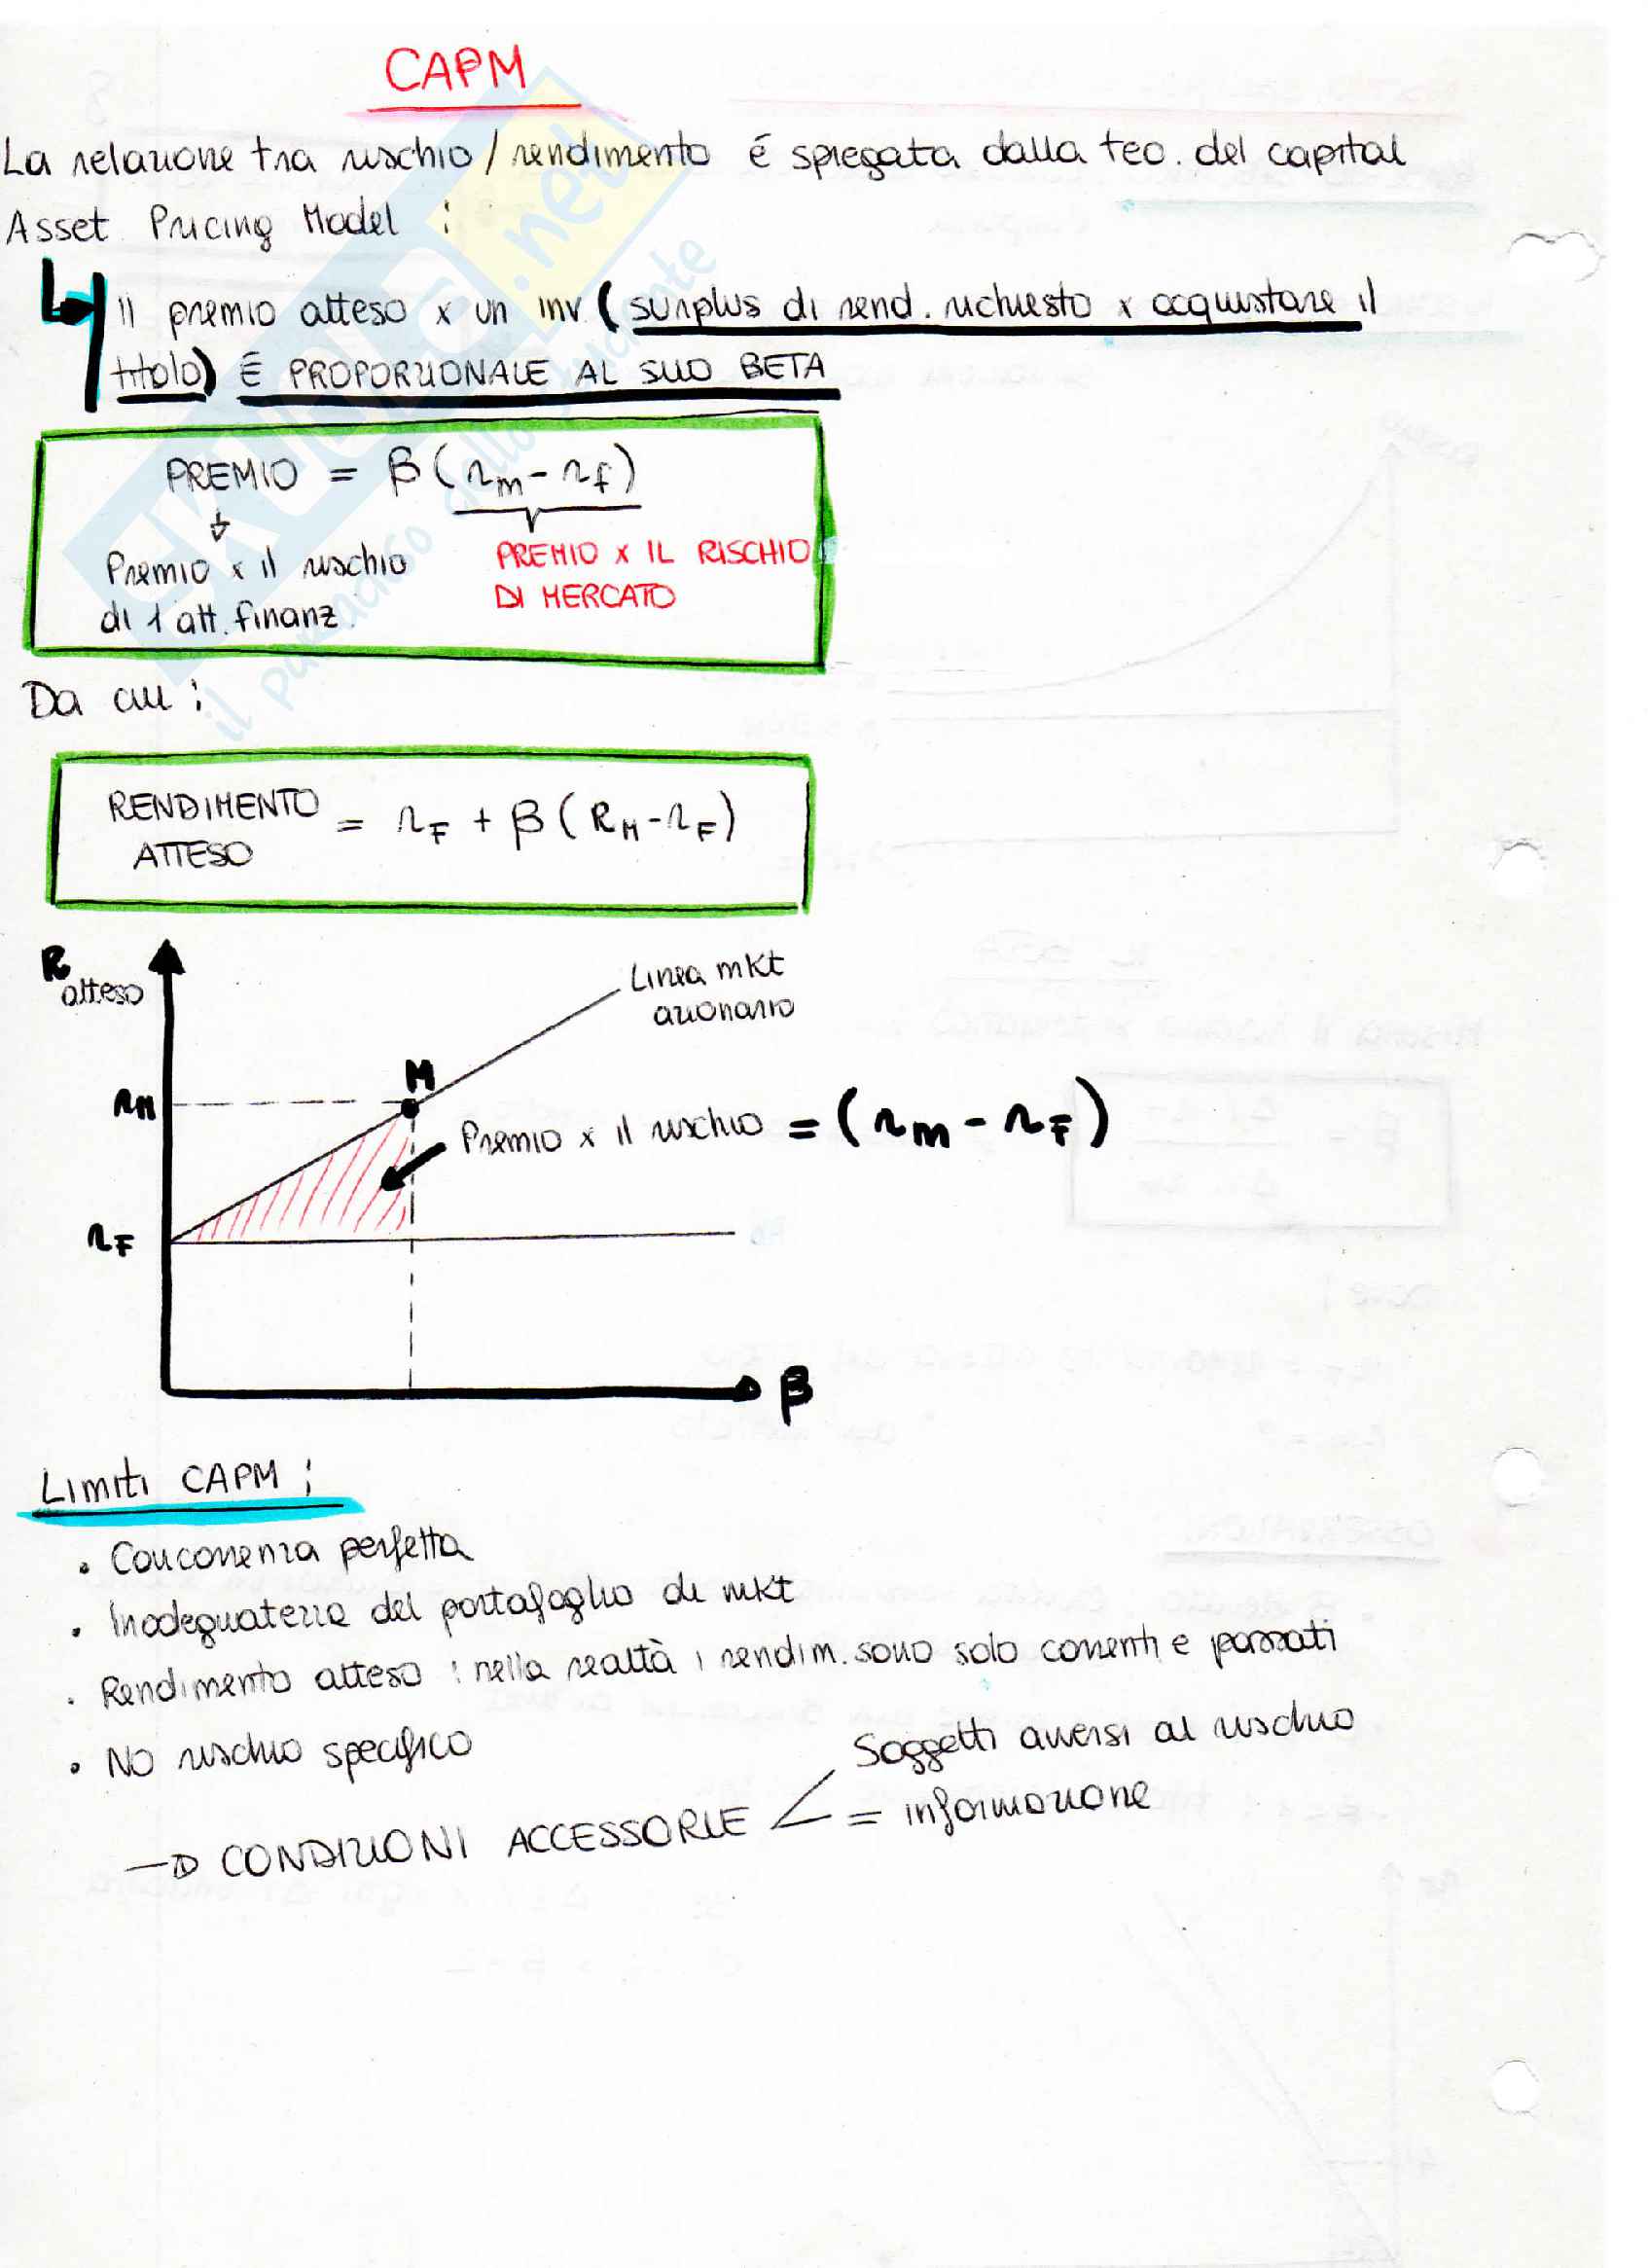 CAPM
La relazione tra rischio / rendimento é spiegata dalla teo. del capital
Asset Pricing Model :
Il premio atteso x un inv. (surplus di rend. richiesto x acquistare il
titolo) É PROPORZIONALE AL SUO BETA
PREMIO = β (rm - rf)
Premio x il rischio
di 1 att. finanz.
PREMIO x IL RISCHIO
DI MERCATO
Da cui :
RENDIMENTO
ATTESO = rF + β (RM - rF)
R atteso
Linea mkt
azionario
M
rM
Premio x il rischio = (rm - rF)
rF
β
Limiti CAPM :
• Concorrenza perfetta
• Inadeguatezza del portafoglio di mkt
• Rendimento atteso : nella realtà i rendim. sono solo correnti e passati
• No rischio specifico
Soggetti avversi al rischio
→ CONDIZIONI ACCESSORIE < = informazione
SKUOLA.net
il paradiso dello studente